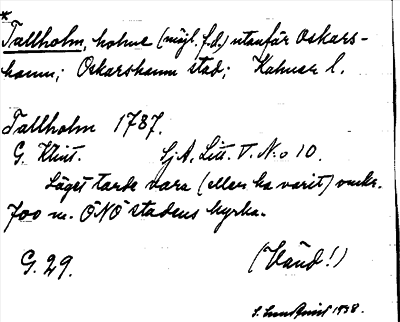 *
Tallholm, holme (möjl. f.d.) utanför Oskars-
hamn; Oskarshamn stad; Kalmar l.
Tallholm 1787.
G. Klint. SjA, Litt. V. N:o 10.
Läget torde vara (eller ha varit) omkr.
700 m. ÖNÖ stadens kyrka.
G. 29. (Vänd!)
1938.